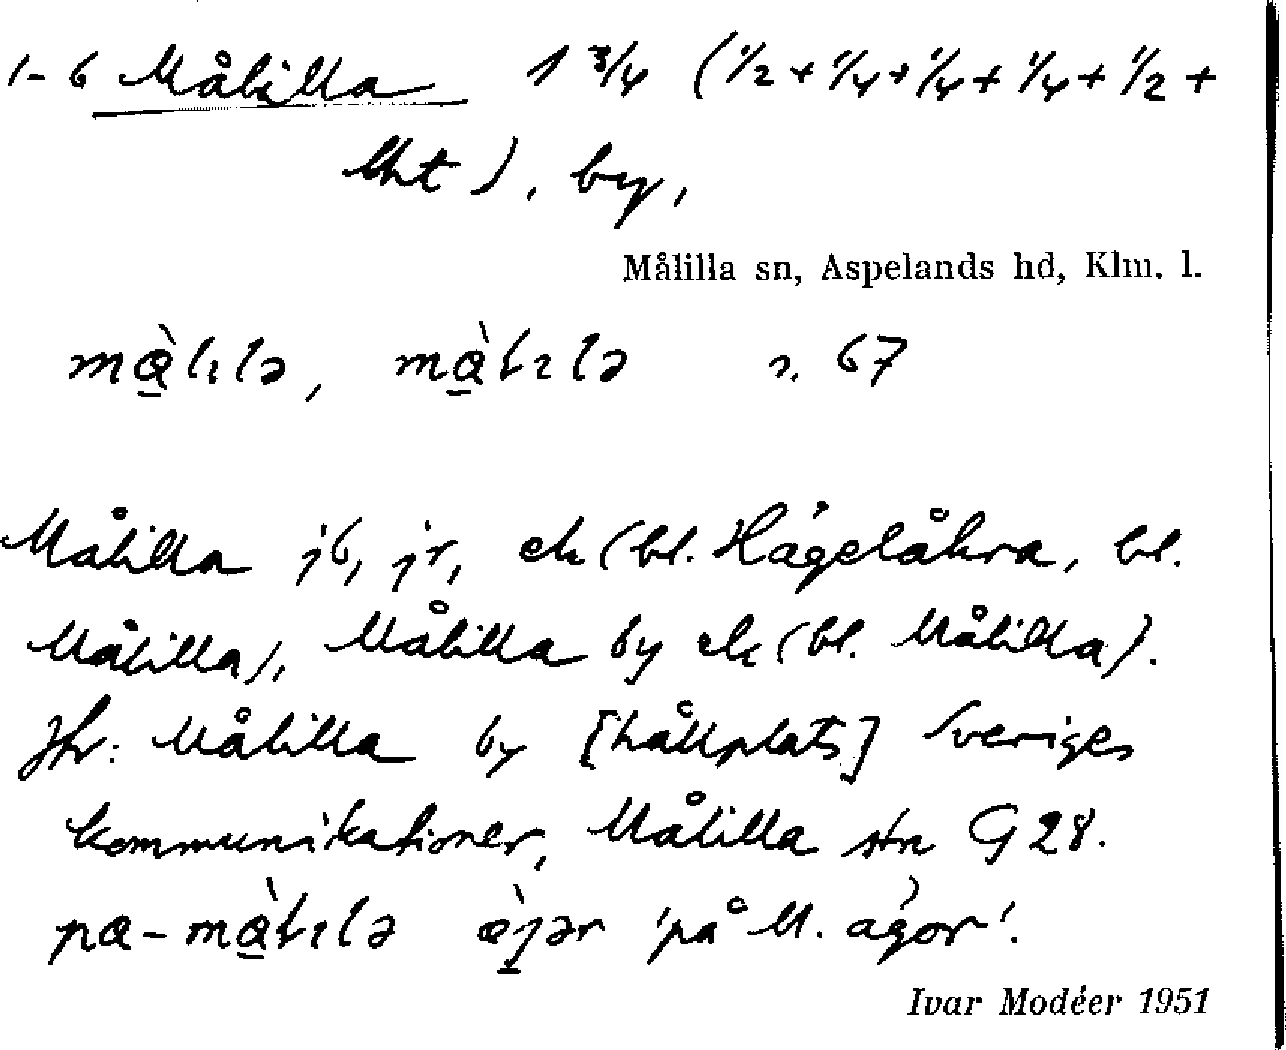 1-6 Målilla 1 3/4 (1/2 + 1/4 + 1/4 + 1/4 + 1/2 +
lht), by,
Målilla sn, Aspelands hd, Klm. l.
s. 67
Målilla jb, jr, ek (bl. Hågelåkra, bl.
Målilla), Målilla by ek (bl. Målilla).
Jfr: Målilla by [hållplats] Sveriges
kommunikationer, Målilla stn G 28.
'på M. ägor'.
Ivar Modéer 1951